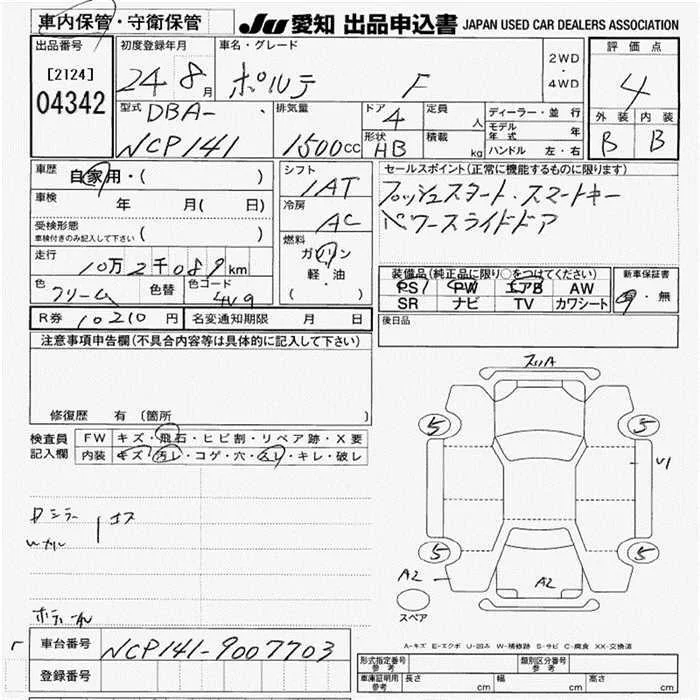 車内保管・守衛保管
JU 愛知 出品申込書 JAPAN USED CAR DEALERS ASSOCIATION
出品番号
[2124]
04342
初度登録年月
24 8月
車名・グレード
ポルテ F
2WD
・
4WD
評価点
4
外装 内装
B B
型式 DBA-
NCP141
排気量
1500cc
ドア 4
形状 HB
定員 人
積載 kg
ディーラー・並行
モデル年式 年
ハンドル 左・右
車歴
自家用・( )
車検
年 月( 日)
受検形態
車検付きのみ記入して下さい ( )
走行
10万2千089km
色 クリーム 色替 色コード 4V9
シフト
IAT
冷房
AC
燃料
ガソリン
軽・油
( )
セールスポイント(正常に機能するものに限ります)
プッシュスタート.スマートキー
パワースライドドア
装備品(純正品に限り○をつけてください)
PS PW エアB AW
SR ナビ TV カワシート
新車保証書
有・無
R券 10210円 名変通知期限 月 日
後日品
注意事項申告欄(不具合内容等は具体的に記入して下さい)
修復歴 有(箇所 )
検査員
記入欄
FW キズ・飛石・ヒビ割・リペア跡・X要
内装 キズ・汚レ・コゲ・穴・スレ・キレ・破レ
スリA
5 5
U1
5 5
A2
A2
スペア
A-キズ E-エクボ U-凹み W-補修跡 S-サビ C-腐食 XX-交換済
車台番号 NCP141-9007703
登録番号
形式指定番号
参考
類別区分番号
参考
車庫証明用
参考
長さ cm 幅 cm 高さ cm